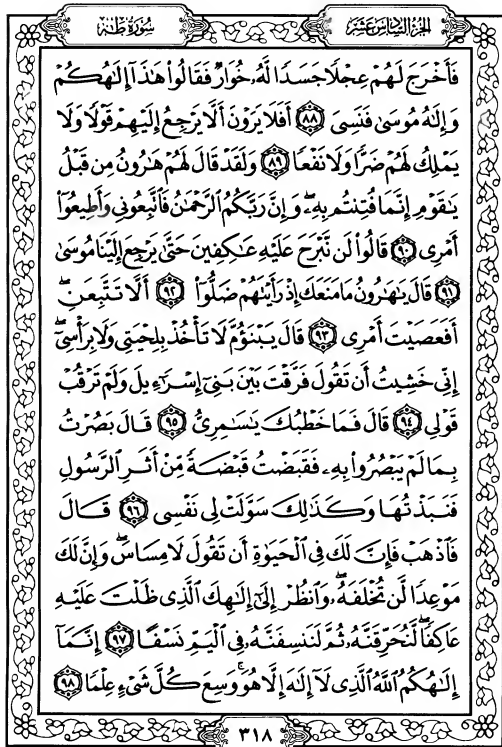 سُورَةُ طه
الجُزءُ السَّادِسَ عَشَرَ
فَأَخْرَجَ لَهُمْ عِجْلًا جَسَدًا لَّهُۥ خُوَارٌ فَقَالُوا۟ هَٰذَآ إِلَٰهُكُمْ
وَإِلَٰهُ مُوسَىٰ فَنَسِىَ ﴿٨٨﴾ أَفَلَا يَرَوْنَ أَلَّا يَرْجِعُ إِلَيْهِمْ قَوْلًا وَلَا
يَمْلِكُ لَهُمْ ضَرًّا وَلَا نَفْعًا ﴿٨٩﴾ وَلَقَدْ قَالَ لَهُمْ هَٰرُونُ مِن قَبْلُ
يَٰقَوْمِ إِنَّمَا فُتِنتُم بِهِۦ وَإِنَّ رَبَّكُمُ ٱلرَّحْمَٰنُ فَٱتَّبِعُونِى وَأَطِيعُوٓا۟
أَمْرِى ﴿٩٠﴾ قَالُوا۟ لَن نَّبْرَحَ عَلَيْهِ عَٰكِفِينَ حَتَّىٰ يَرْجِعَ إِلَيْنَا مُوسَىٰ
﴿٩١﴾ قَالَ يَٰهَٰرُونُ مَا مَنَعَكَ إِذْ رَأَيْتَهُمْ ضَلُّوٓا۟ ﴿٩٢﴾ أَلَّا تَتَّبِعَنِ
أَفَعَصَيْتَ أَمْرِى ﴿٩٣﴾ قَالَ يَبْنَؤُمَّ لَا تَأْخُذْ بِلِحْيَتِى وَلَا بِرَأْسِىٓ
إِنِّى خَشِيتُ أَن تَقُولَ فَرَّقْتَ بَيْنَ بَنِىٓ إِسْرَٰٓءِيلَ وَلَمْ تَرْقُبْ
قَوْلِى ﴿٩٤﴾ قَالَ فَمَا خَطْبُكَ يَٰسَٰمِرِىُّ ﴿٩٥﴾ قَالَ بَصُرْتُ
بِمَا لَمْ يَبْصُرُوا۟ بِهِۦ فَقَبَضْتُ قَبْضَةً مِّنْ أَثَرِ ٱلرَّسُولِ
فَنَبَذْتُهَا وَكَذَٰلِكَ سَوَّلَتْ لِى نَفْسِى ﴿٩٦﴾ قَالَ
فَٱذْهَبْ فَإِنَّ لَكَ فِى ٱلْحَيَوٰةِ أَن تَقُولَ لَا مِسَاسَ وَإِنَّ لَكَ
مَوْعِدًا لَّن تُخْلَفَهُۥ وَٱنظُرْ إِلَىٰٓ إِلَٰهِكَ ٱلَّذِى ظَلْتَ عَلَيْهِ
عَاكِفًا لَّنُحَرِّقَنَّهُۥ ثُمَّ لَنَنسِفَنَّهُۥ فِى ٱلْيَمِّ نَسْفًا ﴿٩٧﴾ إِنَّمَآ
إِلَٰهُكُمُ ٱللَّهُ ٱلَّذِى لَآ إِلَٰهَ إِلَّا هُوَ وَسِعَ كُلَّ شَىْءٍ عِلْمًا ﴿٩٨﴾
٣١٨